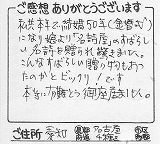 ご感想 ありがとうございます
私共本年で結婚50年(金婚式)
になり娘より「名詩屋」のすばらし
い名詩を贈られ驚きました。
こんなすばらしい贈り物もあっ
たのかとビックリ!です
本当に有難とう御座居ました。
ご住所 愛知 都道府県 名古屋 市区